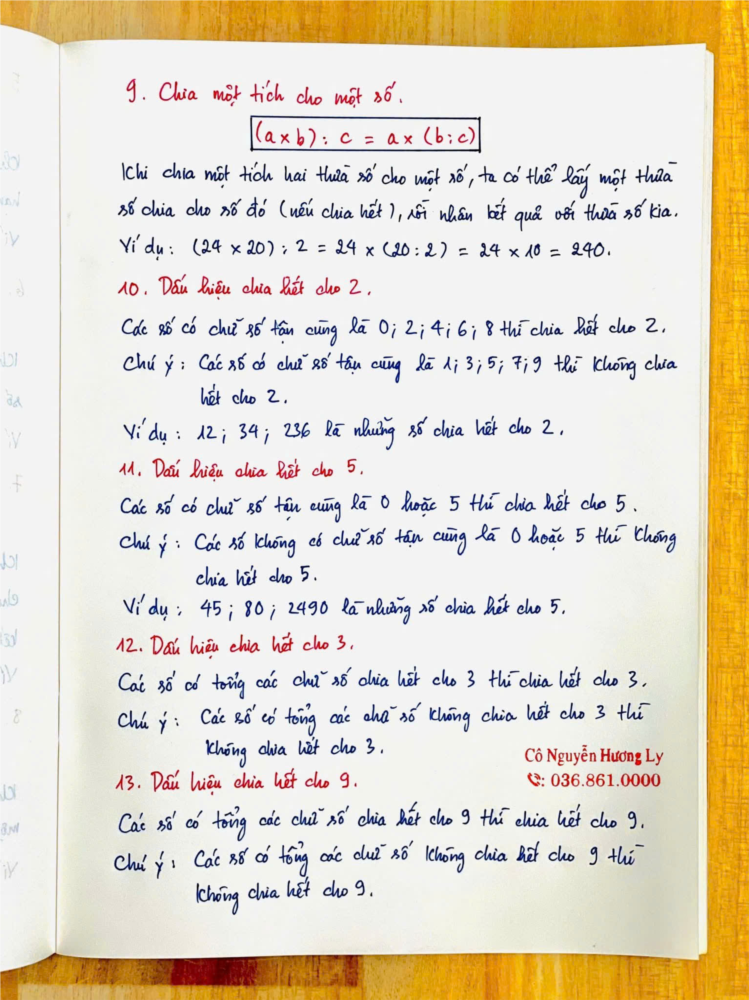 9. Chia một tích cho một số.
(a x b) : c = a x (b : c)
Khi chia một tích hai thừa số cho một số, ta có thể lấy một thừa
số chia cho số đó (nếu chia hết), rồi nhân kết quả với thừa số kia.
Ví dụ : (24 x 20) : 2 = 24 x (20 : 2) = 24 x 10 = 240.
10. Dấu hiệu chia hết cho 2.
Các số có chữ số tận cùng là 0; 2; 4; 6; 8 thì chia hết cho 2.
Chú ý : Các số có chữ số tận cùng là 1; 3; 5; 7; 9 thì không chia
hết cho 2.
Ví dụ : 12 ; 34 ; 236 là những số chia hết cho 2.
11. Dấu hiệu chia hết cho 5.
Các số có chữ số tận cùng là 0 hoặc 5 thì chia hết cho 5.
Chú ý : Các số không có chữ số tận cùng là 0 hoặc 5 thì không
chia hết cho 5.
Ví dụ : 45 ; 80 ; 2490 là những số chia hết cho 5.
12. Dấu hiệu chia hết cho 3.
Các số có tổng các chữ số chia hết cho 3 thì chia hết cho 3.
Chú ý : Các số có tổng các chữ số không chia hết cho 3 thì
không chia hết cho 3.
Cô Nguyễn Hương Ly
: 036.861.0000
13. Dấu hiệu chia hết cho 9.
Các số có tổng các chữ số chia hết cho 9 thì chia hết cho 9.
Chú ý : Các số có tổng các chữ số không chia hết cho 9 thì
không chia hết cho 9.